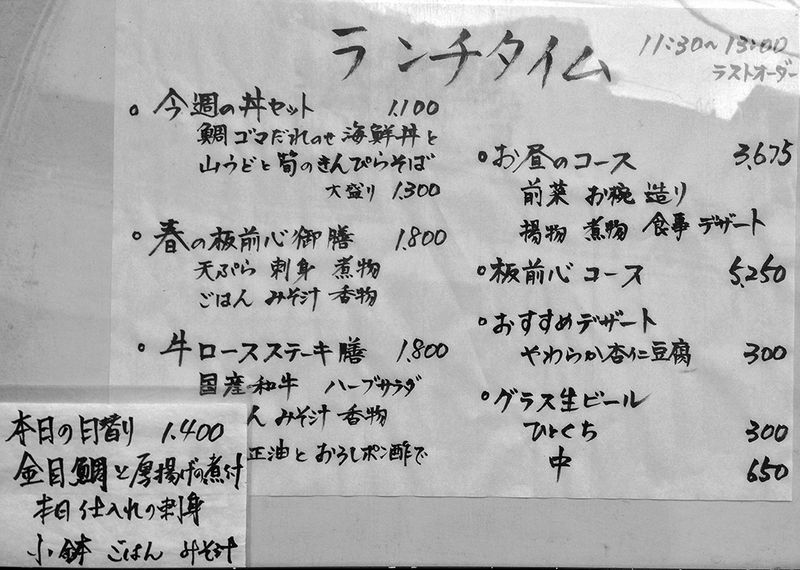 ランチタイム
11:30〜13:00
ラストオーダー
。今週の丼セット 1,100
鯛ゴマだれのせ海鮮丼と
山うどと筍のきんぴらそば
大盛り 1,300
。春の板前心御膳 1,800
天ぷら 刺身 煮物
ごはん みそ汁 香物
。牛ロースステーキ膳 1,800
国産の和牛 ハーブサラダ
ん みそ汁 香物
正油と おろしポン酢で
。お昼のコース 3,675
前菜 お椀 造り
揚物 煮物 食事 デザート
。板前心コース 5,250
。おすすめデザート
やわらか杏仁豆腐 300
。グラス生ビール
ひとくち 300
中 650
本日の日替り 1,400
金目鯛と厚揚げの煮付
本日仕入れの刺身
小鉢 ごはん みそ汁